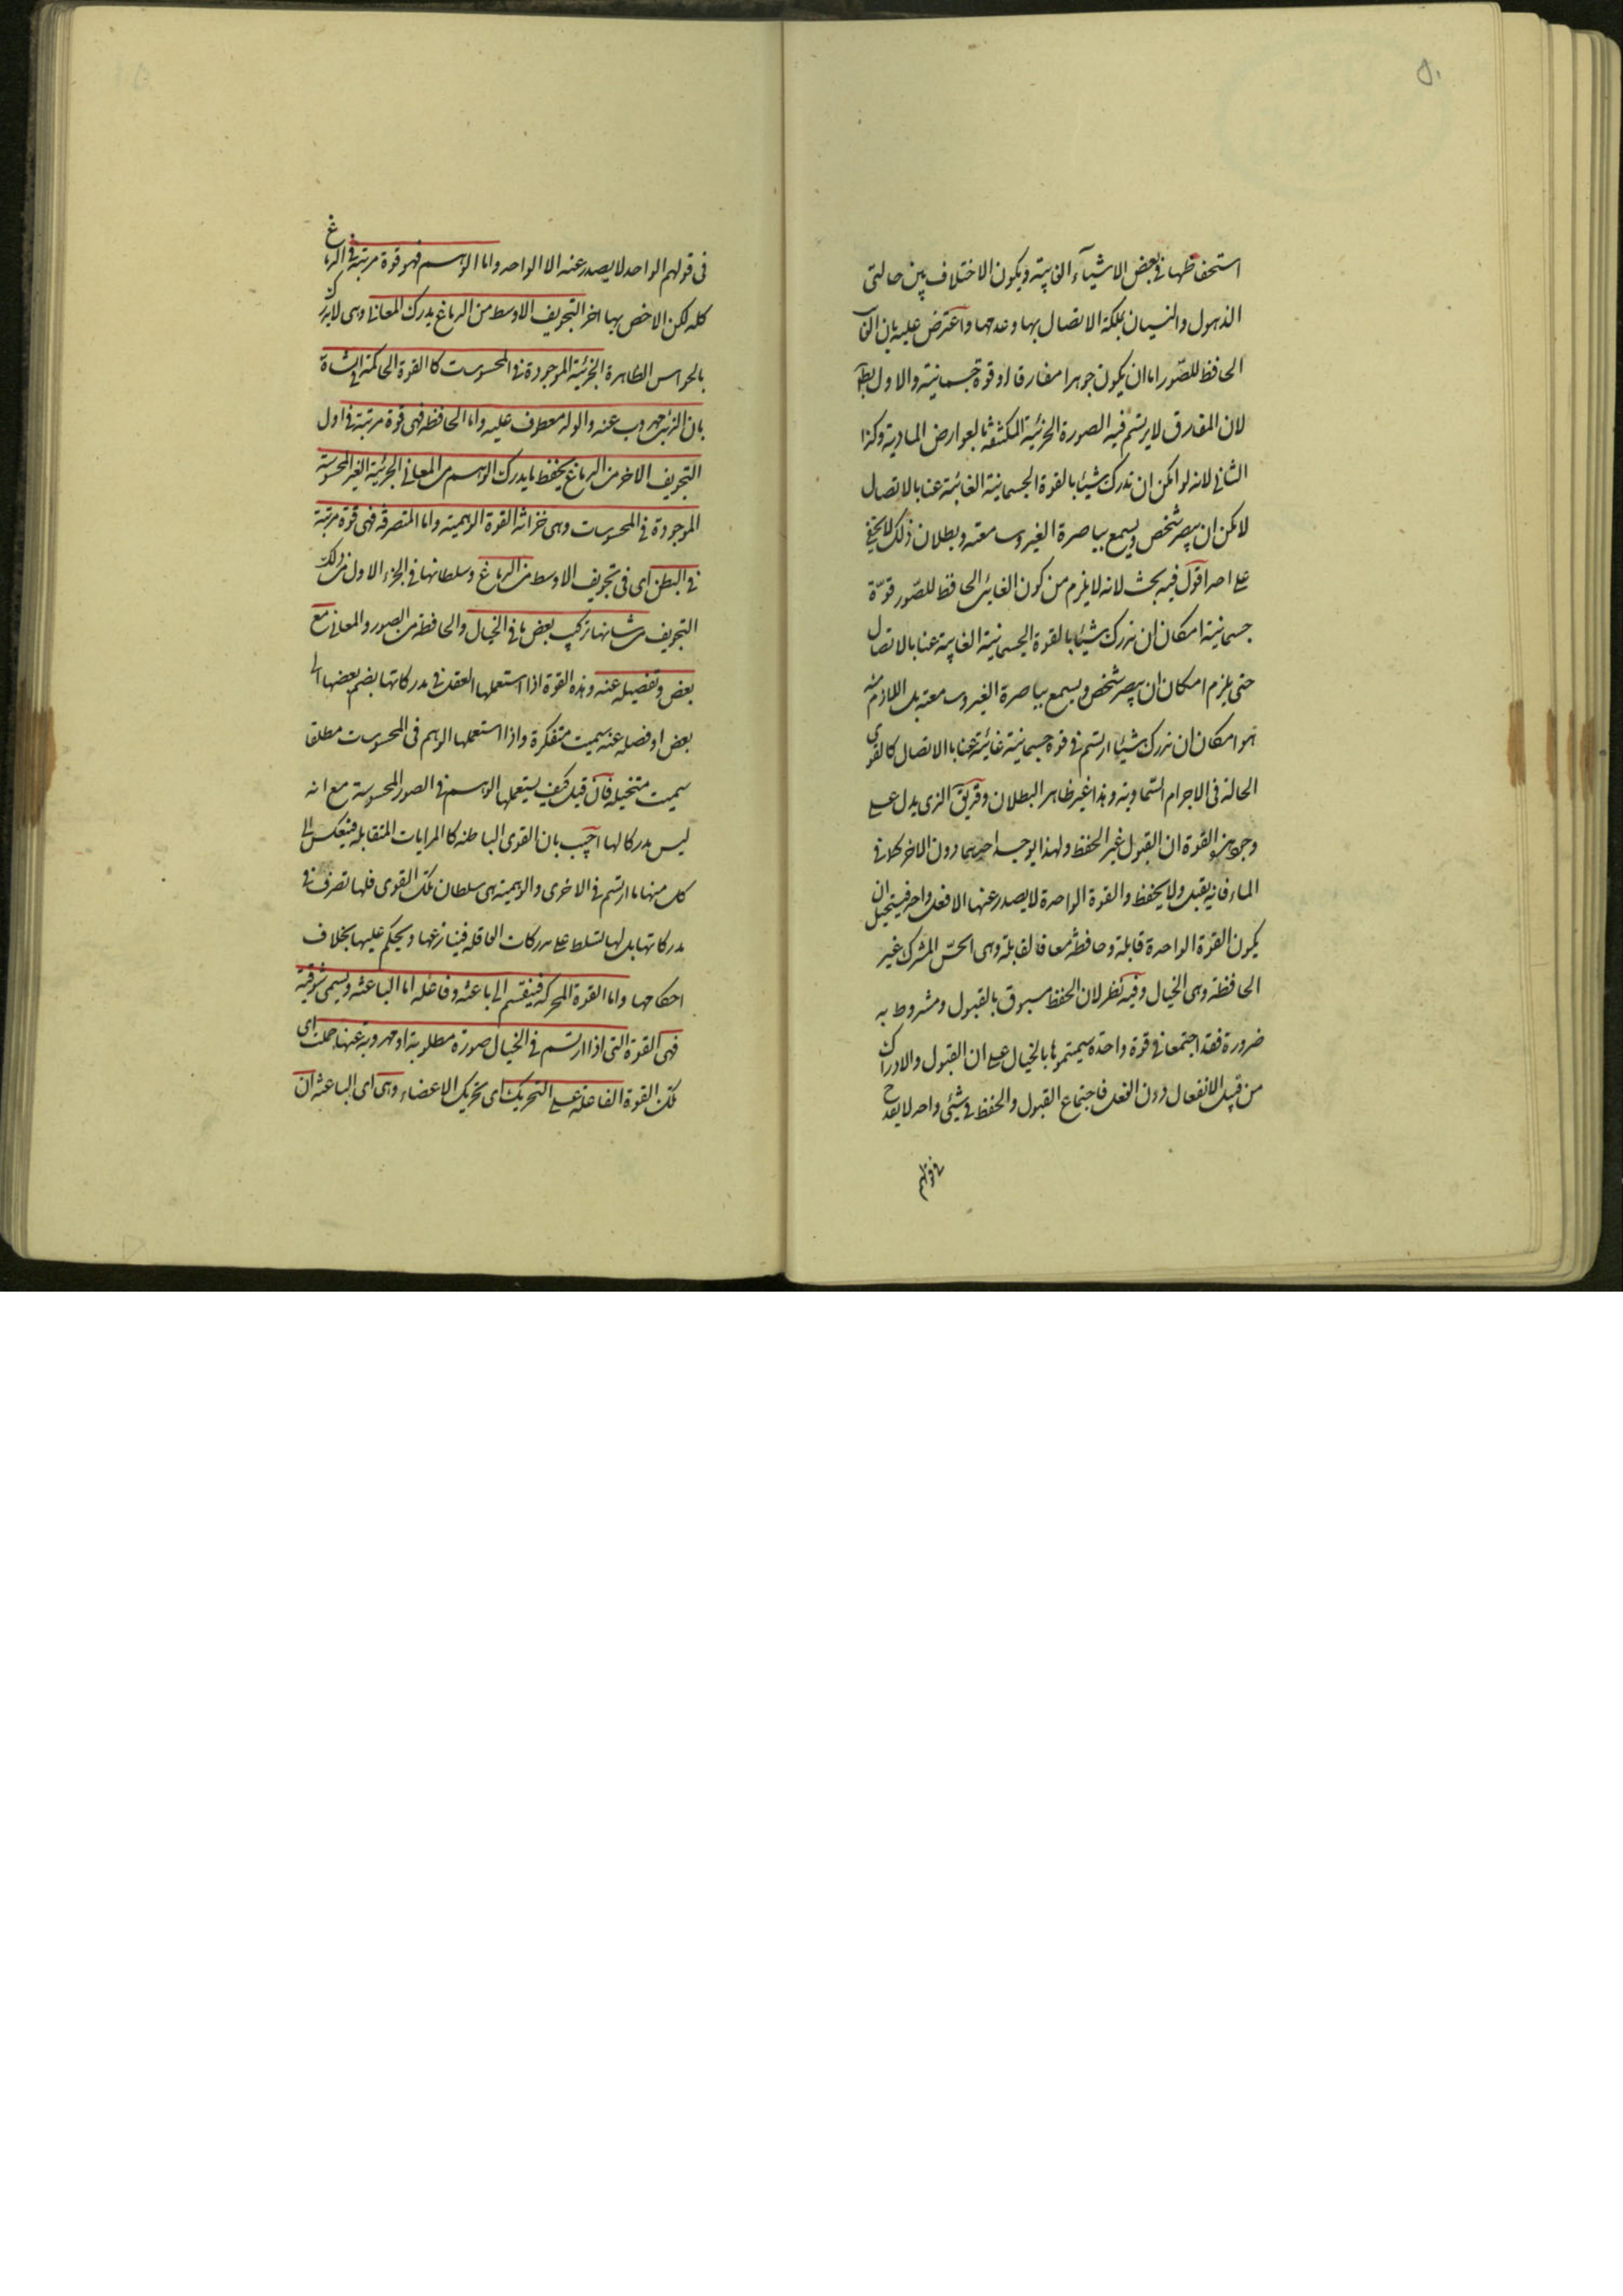 ٥١
استحفظها فى بعض الاشياء الغايبة ويكون الاختلاف بين حالتى
الذهول والنسيان بملكة الاتصال بها وعدمها واعترض عليه بان الغايب
الحافظ للصّور اما ان يكون جوهرا مفارقا او قوة جسمانية والاول بط
لان المفارق لا يرتسم فيه الصورة الجزئية المكتنفة بالعوارض المادية وكذا
الثانى لانه لو امكن ان ندرك شيئا بالقوة الجسمانية الغائبة عنا بالاتصال
لامكن ان يبصر شخص ويسمع بباصرة الغير وسامعته وبطلان ذلك لا يخفى
على احد اقول فيه بحث لانه لا يلزم من كون الغائب الحافظ للصّور قوّة
جسمانية امكان ان ندرك شيئا بالقوة الجسمانية الغايبة عنا بالاتصال
حتى يلزم امكان ان يبصر شخص ويسمع بباصرة الغير وسامعته بل اللازم منه
هو امكان ان ندرك شيئا ارتسم فى قوة جسمانية غائبة عنا بالاتصال كالقوى
الحالة فى الاجرام السّماوية وهذا غير ظاهر البطلان وقريق الذى يدل على
وجود هذه القوة ان القبول غير الحفظ ولهذا يوجد احدهما دون الاخر كما فى
الماء فانه يقبل ولا يحفظ والقوة الواحدة لا يصدر عنها الا فعل واحد فيستحيل ان
يكون القوة الواحدة قابلة وحافظة معا فالقابلة وهى الحسّ المشترك غير
الحافظة وهى الخيال وفيه نظر لان الحفظ مسبوق بالقبول ومشروط به
ضرورة فقد اجتمعا فى قوة واحدة سميتموها بالخيال على ان القبول والادراك
من قبيل الانفعال دون الفعل فاجتماع القبول والحفظ فى شيئ واحد لا يقدح
فى قولهم
فى قولهم الواحد لا يصدر عنه الا الواحد واما الوهم فهو قوة مرتبة فى الدماغ
كله لكن الاخص بها اخر التجويف الاوسط من الدماغ يدرك المعانى وهى لا تدرك
بالحواس الظاهرة الجزئية الموجودة فى المحسوسات كالقوة الحاكمة فى الشاة
بان الذئب مهروب عنه والولد معطوف عليه واما الحافظة فهى قوة مرتبة فى اول
التجويف الاخر من الدماغ يحفظ ما يدرك الوهم من المعانى الجزئية الغير المحسوسة
الموجودة فى المحسوسات وهى خزانة القوة الوهمية واما المتصرفة فهى قوة مرتبة
فى البطن اى فى تجويف الاوسط من الدماغ وسلطانها فى الجزء الاول من ذلك
التجويف من شانها تركيب بعض ما فى الخيال والحافظة من الصور والمعانى مع
بعض وتفصيله عنه وهذه القوة اذا استعملها العقل فى مدركاتها بضم بعضها الى
بعض او فصله عنه سميت متفكرة واذا استعملها الوهم فى المحسوسات مطلقا
سميت متخيلة فان قيل كيف يستعملها الوهم فى الصور المحسوسة مع انه
ليس مدركا لها اجيب بان القوى الباطنة كالمرايات المتقابلة فينعكس الى
كل منها ما ارتسم فى الاخرى والوهمية هى سلطان تلك القوى فلها تصرف فى
مدركاتها بل لها تسلط على مدركات العاقلة فينازعها ويحكم عليها بخلاف
احكامها واما القوة المحركة فينقسم الى باعثة وفاعلة اما الباعثة ويسمى شوقية
فهى القوة التى اذا ارتسم فى الخيال صورة مطلوبة او مهروبة عنها حملت اى
تلك القوة الفاعلة على التحريك اى تحريك الاعضاء وهى اى الباعثة ان